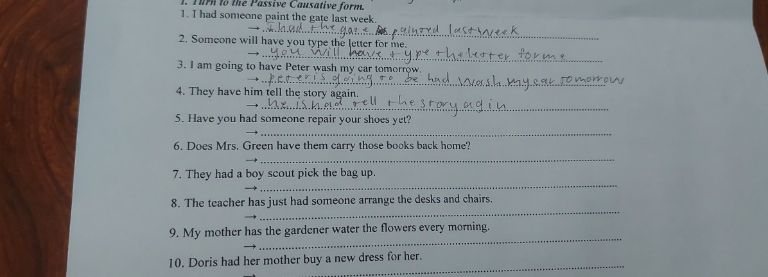 1. Turn to the Passive Causative form.
1. I had someone paint the gate last week.
→ I had the gate painted last week
2. Someone will have you type the letter for me.
→ you will have type the letter for me
3. I am going to have Peter wash my car tomorrow.
→ peter is going to be had wash my car tomorrow
4. They have him tell the story again.
→ he is had tell the story agin
5. Have you had someone repair your shoes yet?
→
6. Does Mrs. Green have them carry those books back home?
→
7. They had a boy scout pick the bag up.
→
8. The teacher has just had someone arrange the desks and chairs.
→
9. My mother has the gardener water the flowers every morning.
→
10. Doris had her mother buy a new dress for her.
→